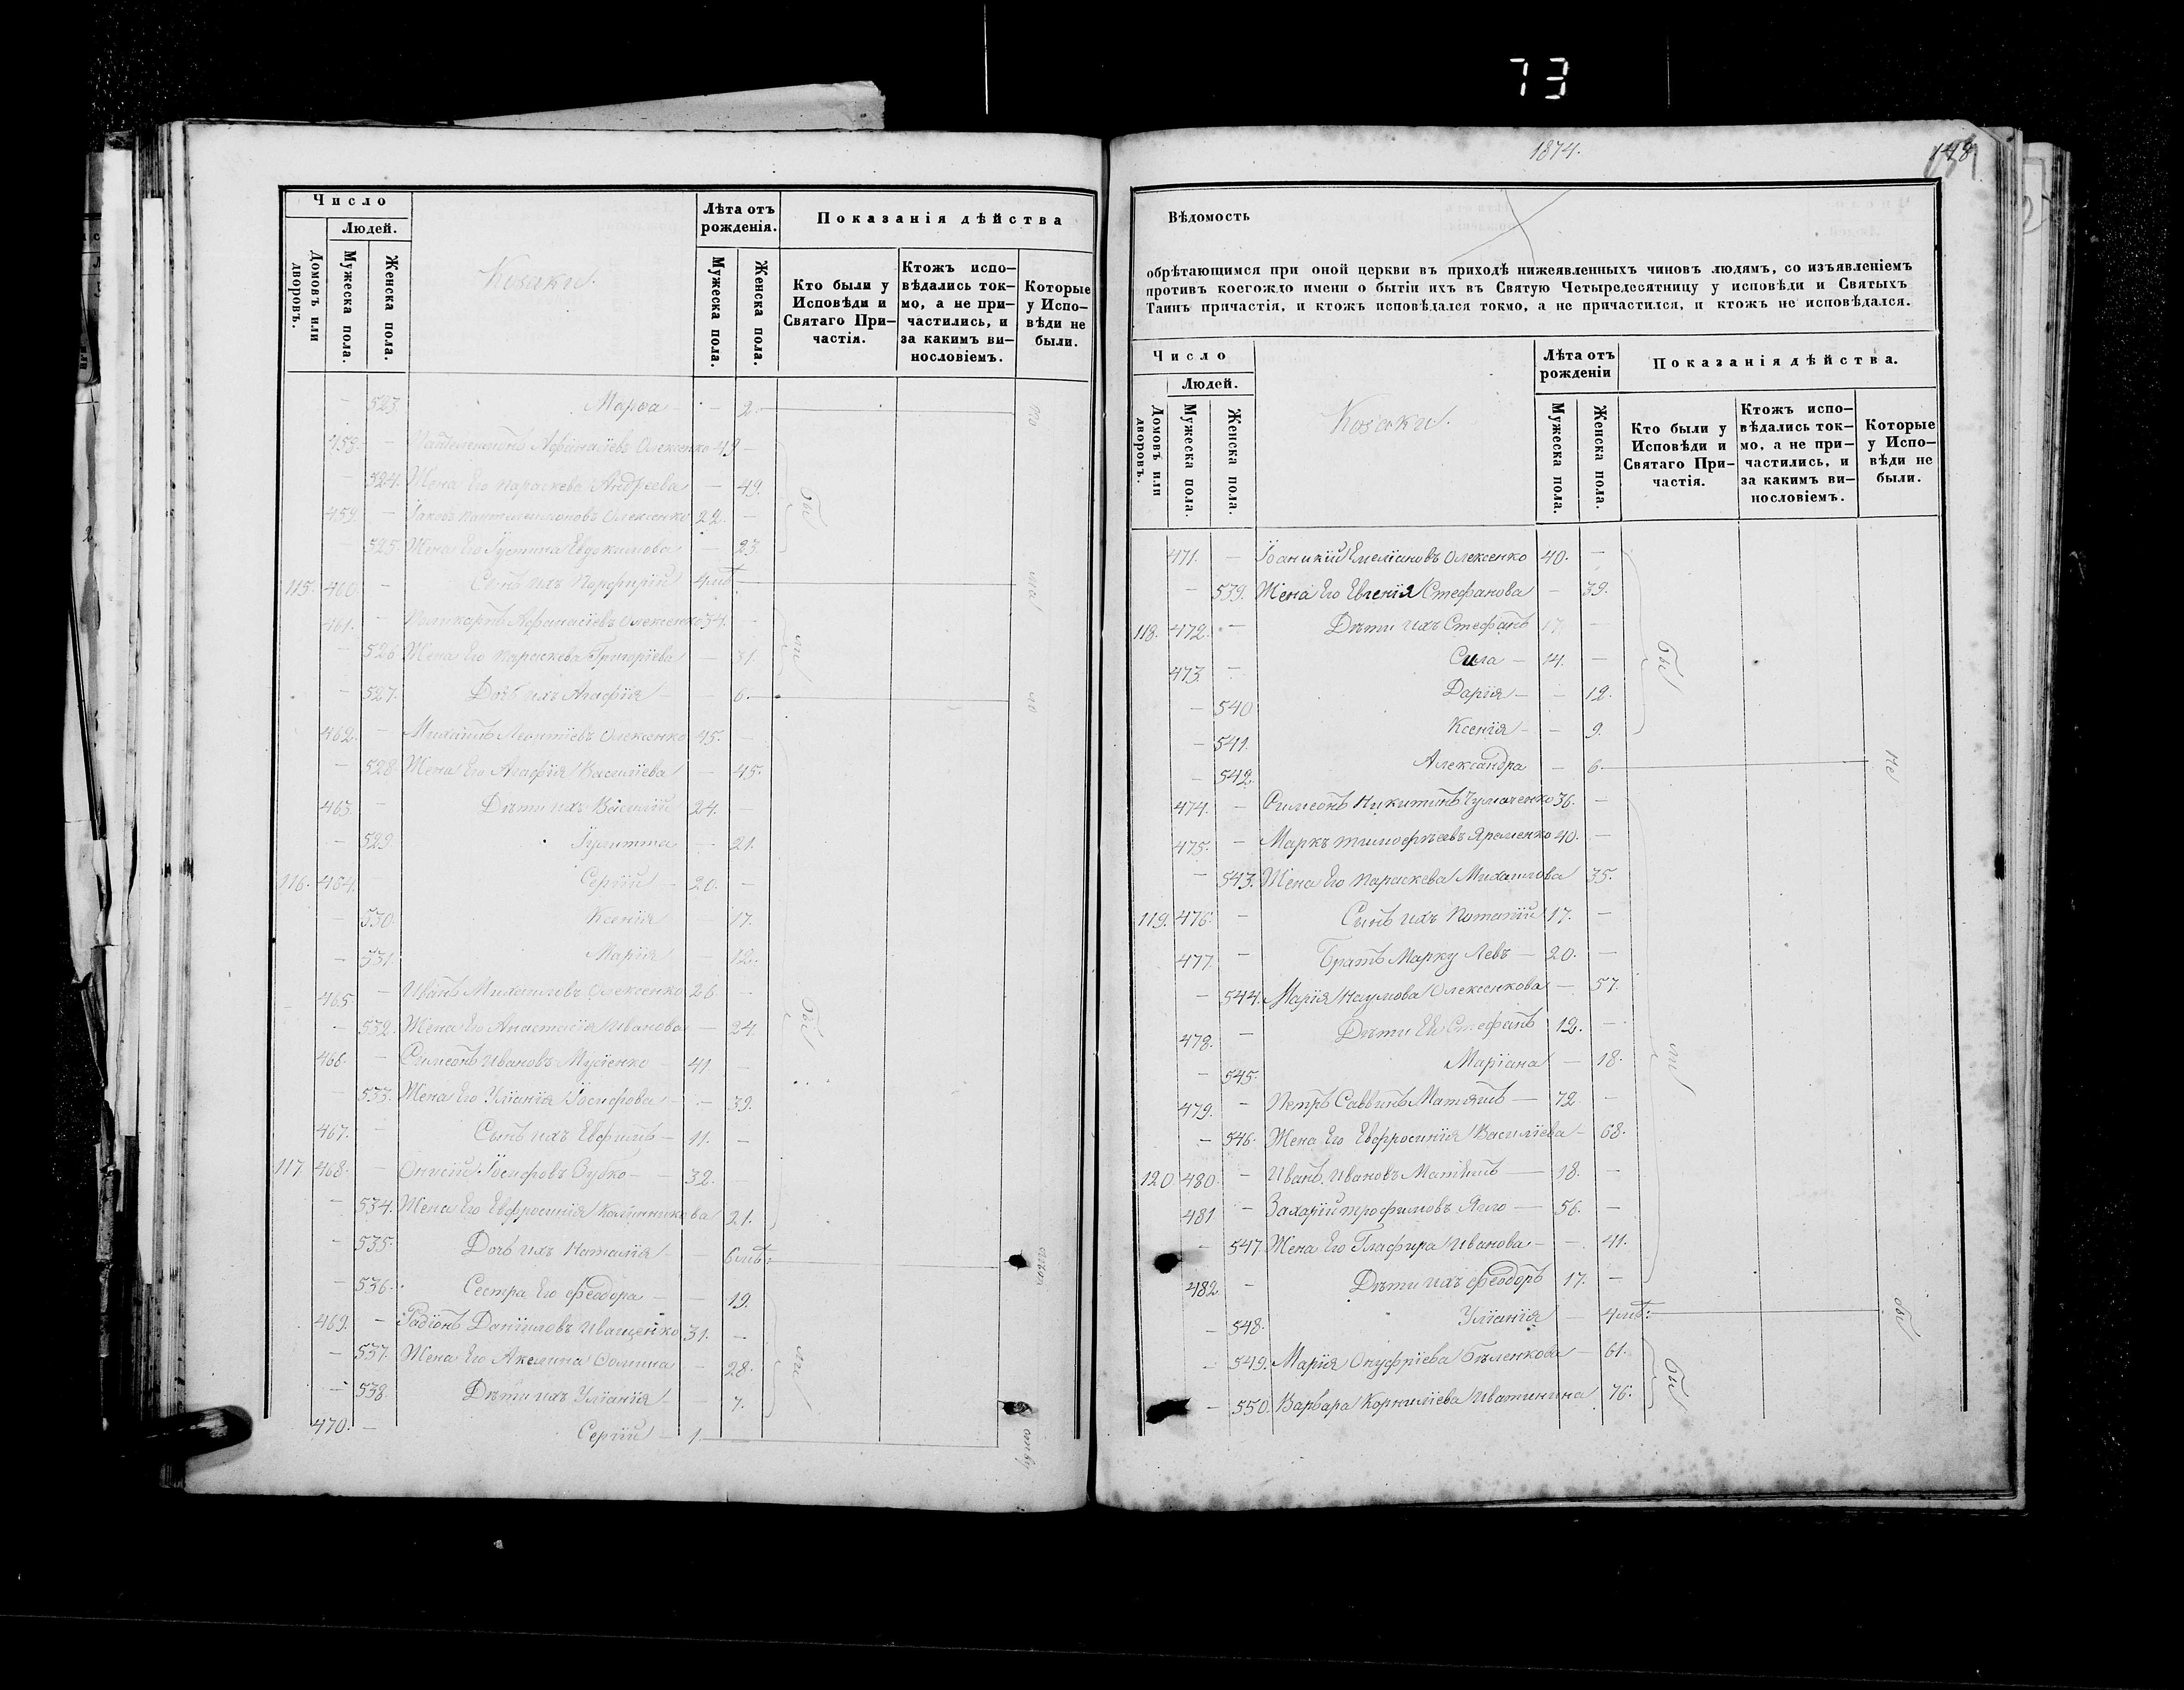 73
Число
Людей.
Домовъ или дворовъ.
Мужеска пола.
Женска пола.
Козаки.
Лѣта отъ рожденія.
Мужеска пола.
Женска пола.
Показанія дѣйства
Кто были у Исповѣди и Святаго При-
частія.
Ктожъ испо-
вѣдались ток-
мо, а не при-
частились, и
за какимъ ви-
нословіемъ.
Которые
у Испо-
вѣди не
были.
— 523. Марѳа — — 2.
458. — Пантелеимонъ Афанасіевъ Олексенко 49 —
— 524. Жена Его Параскева Андреева — 49.
459. — Іаковъ Пантелеимоновъ Олексенко 22. —
— 525. Жена Его Іустина Евдокимова — 23.
115. 460. — Сынъ ихъ Порфирій 4 мѣ.
461. — Поликарпъ Афанасіевъ Олексенко 34. —
— 526 Жена Его Параскева Григоріева — 31.
— 527. Дочь ихъ Агафія — — 6.
462. — Михаилъ Леонтіевъ Олексенко 45. —
— 528 Жена Его Агафія Василіева — 45.
463. — Дѣти ихъ Василій 24. —
— 529. Іулитта — 21.
116. 464. — Сергій — 20. —
— 530. Ксенія — 17.
— 531. Марія — 12.
465 — Иванъ Михаиловъ Олексенко 26 —
— 532. Жена Его Анастасія Иванова — 24
466. — Симеонъ Ивановъ Мусіенко — 41. —
— 533. Жена Его Уліанія Іосифова — — 39.
467. — Сынъ ихъ Евфимъ — 11. —
117 468. — Онисій Іосифовъ Зубко — 32.
— 534. Жена Его Евфросинія Каллиникова 21.
— 535. Дочь ихъ Наталія — 6 мѣ.
— 536. Сестра Его Феодора — — 19.
469. — Радіонъ Даніиловъ Иващенко 31. —
— 537. Жена Его Акилина Фомина — 28.
— 538 Дѣти ихъ Уліанія — 7.
470. — Сергій — 1.
бы
ли
бы
ли
мал
1874.
148
Вѣдомость
обрѣтающимся при оной церкви въ приходѣ нижеявленныхъ чиновъ людямъ, со изъявленіемъ
противъ коегождо имени о бытіи ихъ въ Святую Четыредесятницу у исповѣди и Святыхъ
Таинъ причастія, и ктожъ исповѣдался токмо, а не причастился, и ктожъ не исповѣдался.
Число
Людей.
Домовъ или дворовъ.
Мужеска пола.
Женска пола.
Козаки.
Лѣта отъ рожденіи
Мужеска пола.
Женска пола.
Показанія дѣйства.
Кто были у
Исповѣди и
Святаго При-
частія.
Ктожъ испо-
вѣдались ток-
мо, а не при-
частились, и
за какимъ ви-
нословіемъ.
Которые
у Испо-
вѣди не
были.
471. — Іоаникій Емеліановъ Олексенко 40. —
— 539. Жена Его Евгенія Стефанова — 39.
118. 472. — Дѣти ихъ Стефанъ 17. —
473. — Сила — 14. —
— 540 Дарія — — 12.
— 541. Ксенія — — 9.
— 542. Александра — 6.
474. — Симеонъ Никитинъ Чумаченко 36. —
475. — Маркъ Тимофѣевъ Яременко 40. —
— 543. Жена Его Параскева Михаилова 35.
119. 476. — Сынъ ихъ Потапій 17. —
477. — Братъ Марку Левъ — 20. —
— 544. Марія Наумова Олексенкова — 57.
478. — Дѣти Ея Стефанъ 12. —
— 545. Маріана — 18.
479. — Петръ Саввинъ Матяшъ — 72. —
— 546. Жена Его Евфросинія Василіева — 68.
120 480. — Иванъ Ивановъ Матяшъ — 18. —
481. — Захарій Трофимовъ Ягло — 56. —
— 547. Жена Его Глафира Иванова — — 41.
482. — Дѣти ихъ Феодоръ 17. —
— 548. Уліанія — 4 мѣ.
— 549. Марія Онуфріева Бѣленкова — 61.
— 550. Варвара Корнилієва Иватинина 76.
бы
ли
бы